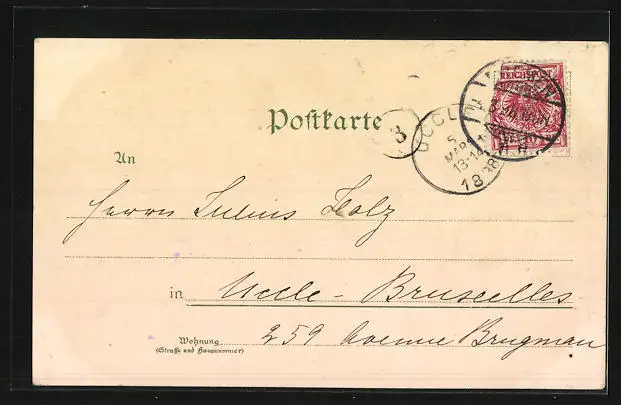 REICHSPOST
Postkarte
3
UCCLE
5
MARS
13-14
1898
An
Herrn Julius Holz
in Uccle-Bruxelles
Wohnung 259 Avenue Brugman
(Straße und Hausnummer)